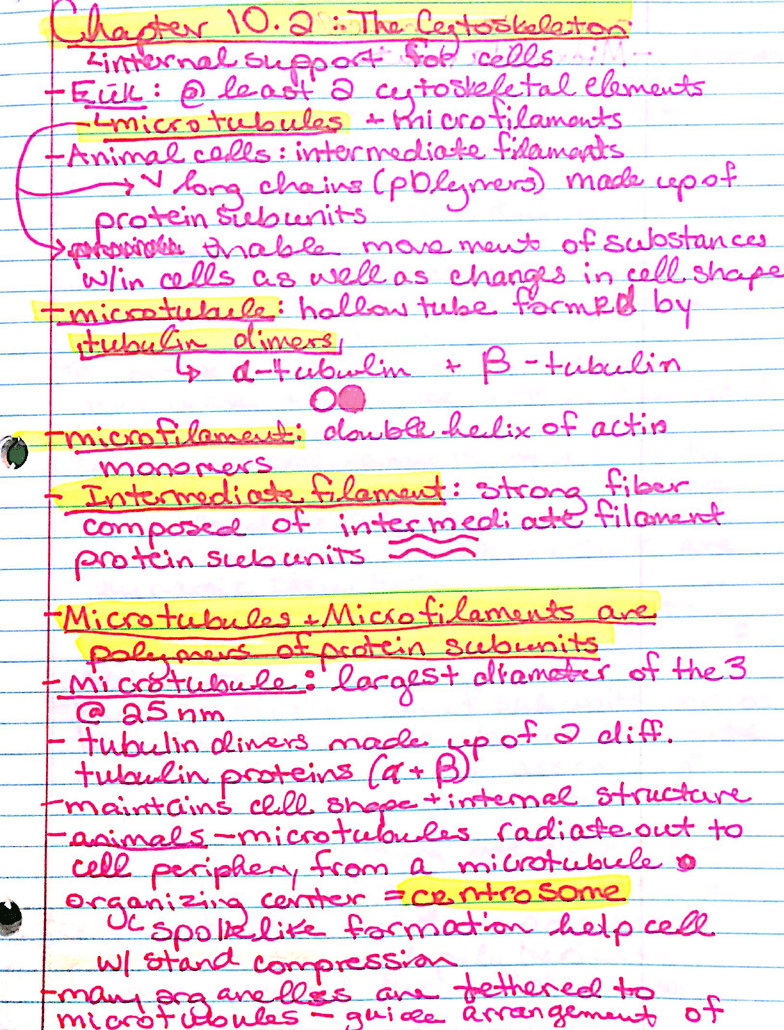 Chapter 10.2 : The Cytoskeleton
↳internal support for cells
- Euk: @ least 2 cytoskeletal elements
↳microtubules + microfilaments
- Animal cells: intermediate filaments
→ long chains (polymers) made up of
protein subunits
→ enable movement of substances
w/in cells as well as changes in cell shape
- microtubule: hollow tube formed by
tubulin dimers
↳ α-tubulin + β-tubulin
- microfilament: double helix of actin
monomers
- Intermediate filament: strong fiber
composed of intermediate filament
protein subunits
- Microtubules + Microfilaments are
polymers of protein subunits
- Microtubule: largest diameter of the 3
@ 25 nm
- tubulin dimers made up of 2 diff.
tubulin proteins (α + β)
- maintains cell shape + internal structure
- animals - microtubules radiate out to
cell periphery from a microtubule
organizing center = centrosome
spokelike formation help cell
w/stand compression
- many organelles are tethered to
microtubules - guide arrangement of